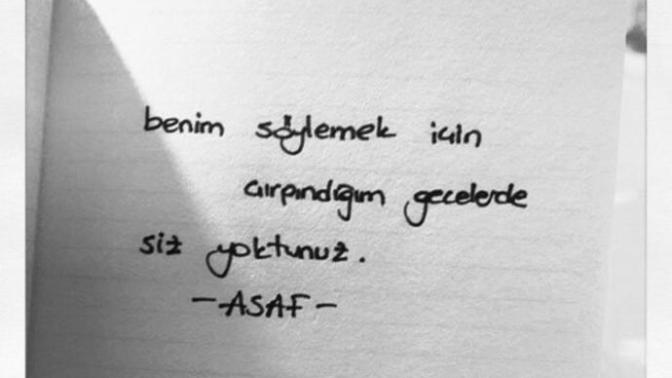 benim söylemek için
çırpındığım gecelerde
siz yoktunuz.
-ASAF-